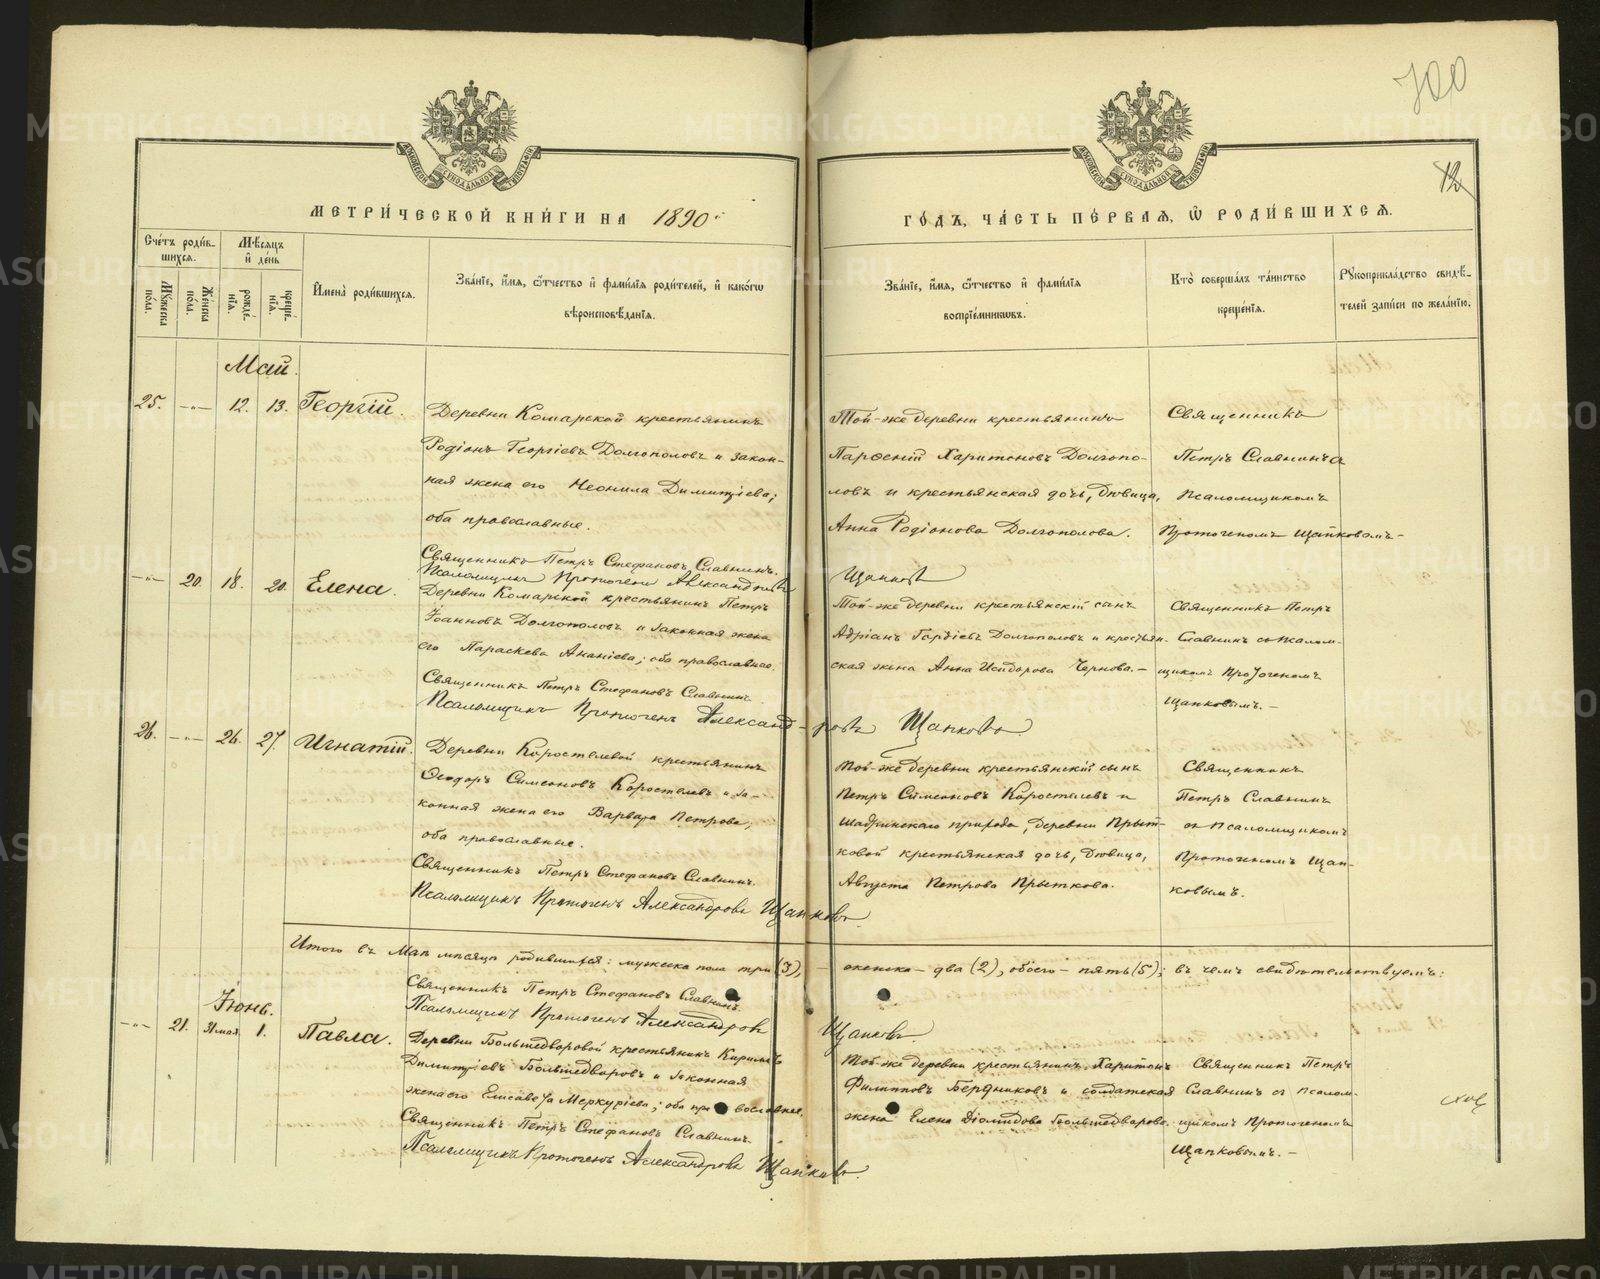 700
12
МЕТРИ́ЧЕСКОЙ КНИ́ГИ НА 1890
ГО́ДЪ, ЧА́СТЬ ПЕ́РВАЯ, Ѽ РОДИ́ВШИХСѦ.
Сче́тъ роди́в-
шихся.
Мѣ́сяцъ
и҆ де́нь
Мꙋ́жеска по́ла.
Же́нска по́ла.
рожде́нїя.
креще́нїя.
И҆мена̀ роди́вшихся.
Зва́нїе, и҆́мя, ѻ҆́тчество и҆ фами́лїя роди́телей, и҆ како́гѡ
вѣроисповѣ́данїя.
Зва́нїе, и҆́мя, ѻ҆́тчество и҆ фами́лїя
воспрїе́мникѡвъ.
Кто̀ соверша́лъ та́инство
креще́нїя.
Рꙋкоприкла́дство свидѣ́-
телей за́писи по жела́нїю.
Май.
25. —„— 12. 13. Георгій.
Деревни Комарской крестьянинъ
Родіонъ Георгіевъ Долгополовъ и закон-
ная жена его Неонила Димитріева;
оба православные.
Священникъ Петръ Стефановъ Славнинъ.
Псаломщикъ Протогенъ Александровъ
Той-же деревни крестьянинъ
Парѳеній Харитоновъ Долгопо-
ловъ и крестьянская дочь, дѣвица,
Анна Родіонова Долгополова.
Щапковъ
Священникъ
Петръ Славнинъ
Псаломщикомъ
Протогеномъ Щапковымъ-
—„— 20. 18. 20. Елена.
Деревни Комарской крестьянинъ Петръ
Іоанновъ Долгополовъ и законная жена
его Параскева Ананіева; оба православные.
Священникъ Петръ Стефановъ Славнинъ.
Псаломщикъ Протогенъ Александ-ровъ Щапковъ
Той-же деревни крестьянскій сынъ
Адріанъ Гордіевъ Долгополовъ и крестьян-
ская жена Анна Исидорова Чернова.-
Священникъ Петръ
Славнинъ съ псалом-
щикомъ Протогеномъ
Щапковымъ.-
26. —„— 26. 27. Игнатій.
Деревни Коростелевой крестьянинъ
Ѳеодоръ Симеоновъ Коростелевъ и за-
конная жена его Варвара Петрова;
оба православные.
Священникъ Петръ Стефановъ Славнинъ.
Псаломщикъ Протогенъ Александровъ Щапковъ.
Той-же деревни крестьянскій сынъ
Петръ Симеоновъ Коростелевъ и
Шадринскаго прихода, деревни Прыт-
ковой крестьянская дочь, дѣвица,
Августа Петрова Прыткова.
Священникъ
Петръ Славнинъ
съ Псаломщикомъ
Протогеномъ Щап-
ковымъ.
Итого въ Маѣ мѣсяцѣ родившихся: мужеска пола три (3), женска - два (2), обоего - пять (5); въ чемъ свидѣтельствуемъ:
Священникъ Петръ Стефановъ Славнинъ.
Псаломщикъ Протогенъ Александровъ Щапковъ.
Іюнь.
—„— 21. 31 мая. 1. Павла.
Деревни Большедворовой крестьянинъ Кириллъ
Димитріевъ Большедворовъ и законная
жена его Елисавета Меркуріева; оба православные.
Священникъ Петръ Стефановъ Славнинъ.
Псаломщикъ Протогенъ Александровъ Щапковъ.
Той-же деревни крестьянинъ Харитонъ
Филипповъ Бердниковъ и солдатская
жена Елена Діомидова Большедворова.
Священникъ Петръ
Славнинъ съ псалом-
щикомъ Протогеномъ
Щапковымъ.-